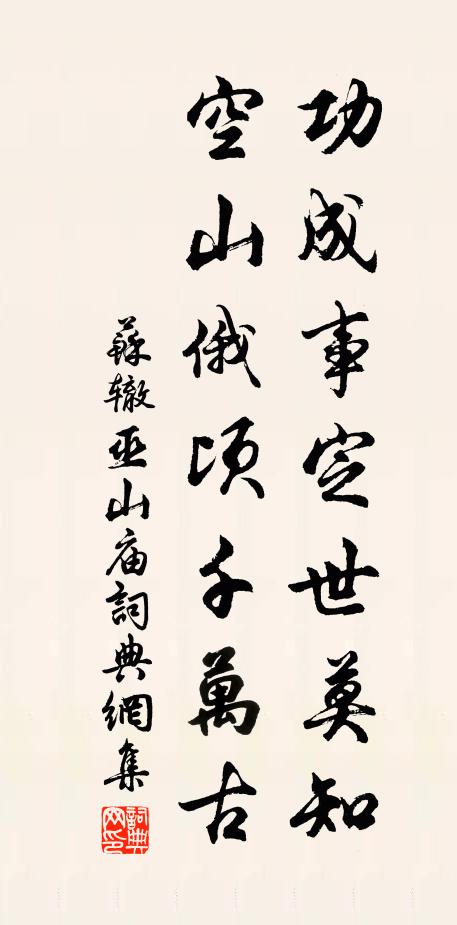 功成事定世莫知
空山俄頃千萬古
蘇辙巫山庙詞典網集
詞典网印